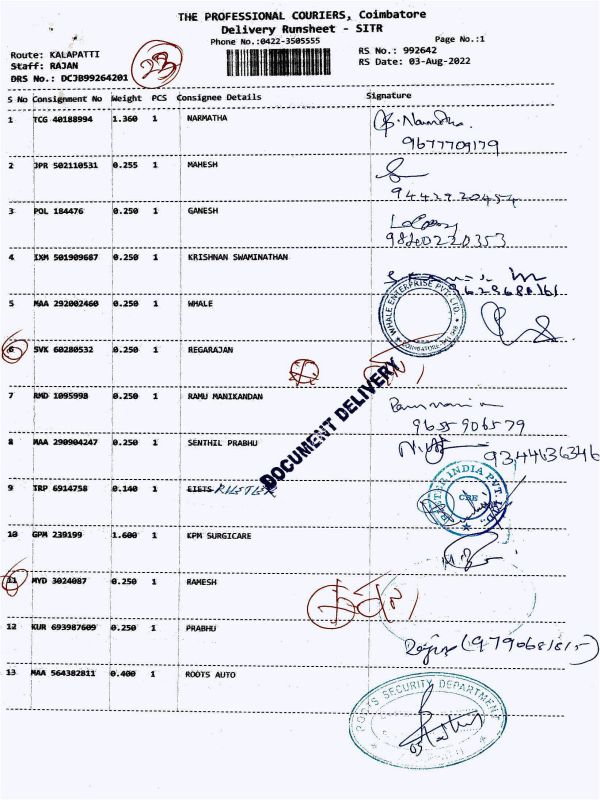 THE PROFESSIONAL COURIERS, Coimbatore
Delivery Runsheet - SITR
Phone No.:0422-3505555
Page No.:1
Route: KALAPATTI
RS No.: 992642
Staff: RAJAN
RS Date: 03-Aug-2022
DRS No.: DCJB99264201
23
S No Consignment No Weight PCS Consignee Details Signature
1 TCG 40188994 1.360 1 NARMATHA
9677709179
2 JPR 502110531 0.255 1 MAHESH
9442920454
3 POL 184476 0.250 1 GANESH
9840022353
4 IXM 501909687 0.250 1 KRISHNAN SWAMINATHAN
9629680161
5 MAA 292002460 0.250 1 WHALE
WHALE ENTERPRISE PVT. LTD.
6 SVK 60280532 0.250 1 REGARAJAN
DOCUMENT DELIVERY
7 RMD 1095998 0.250 1 RAMU MANIKANDAN
9655906579
8 MAA 290904247 0.250 1 SENTHIL PRABHU
9344636346
9 TRP 6914758 0.140 1 EIETS RIETER
RIETER INDIA PVT. LTD.
CBE
10 GPM 239199 1.600 1 KPM SURGICARE
11 MYD 3024087 0.250 1 RAMESH
12 KUR 693987609 0.250 1 PRABHU
13 MAA 564382811 0.400 1 ROOTS AUTO
ROOTS SECURITY DEPARTMENT